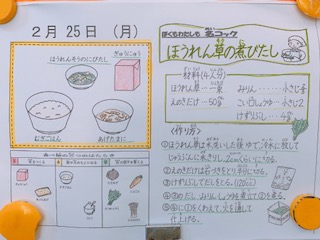 ２月 25日 （月）
ぎゅうにゅう
ほうれんそうのにびたし
むぎごはん
あげたまに
ぼくもわたしも 名コック
ほうれん草の煮びたし
材料（4人分）
ほうれん草 一束
みりん 小さじ
えのきだけ 50g
こい口しょうゆ 小さじ2
けずりぶし 4g
〈作り方〉
①ほうれん草は水洗いした後ゆで、冷水に放して
じゅうぶんに水きりし、2cmくらいに切る。
②えのきだけは石づきをとり
③けずりぶしでだしをとる。(120cc)
④③のだし、みりん、しょうゆを煮立て②を煮る。
⑤④に①をくわえて、火を通して
仕上げる。